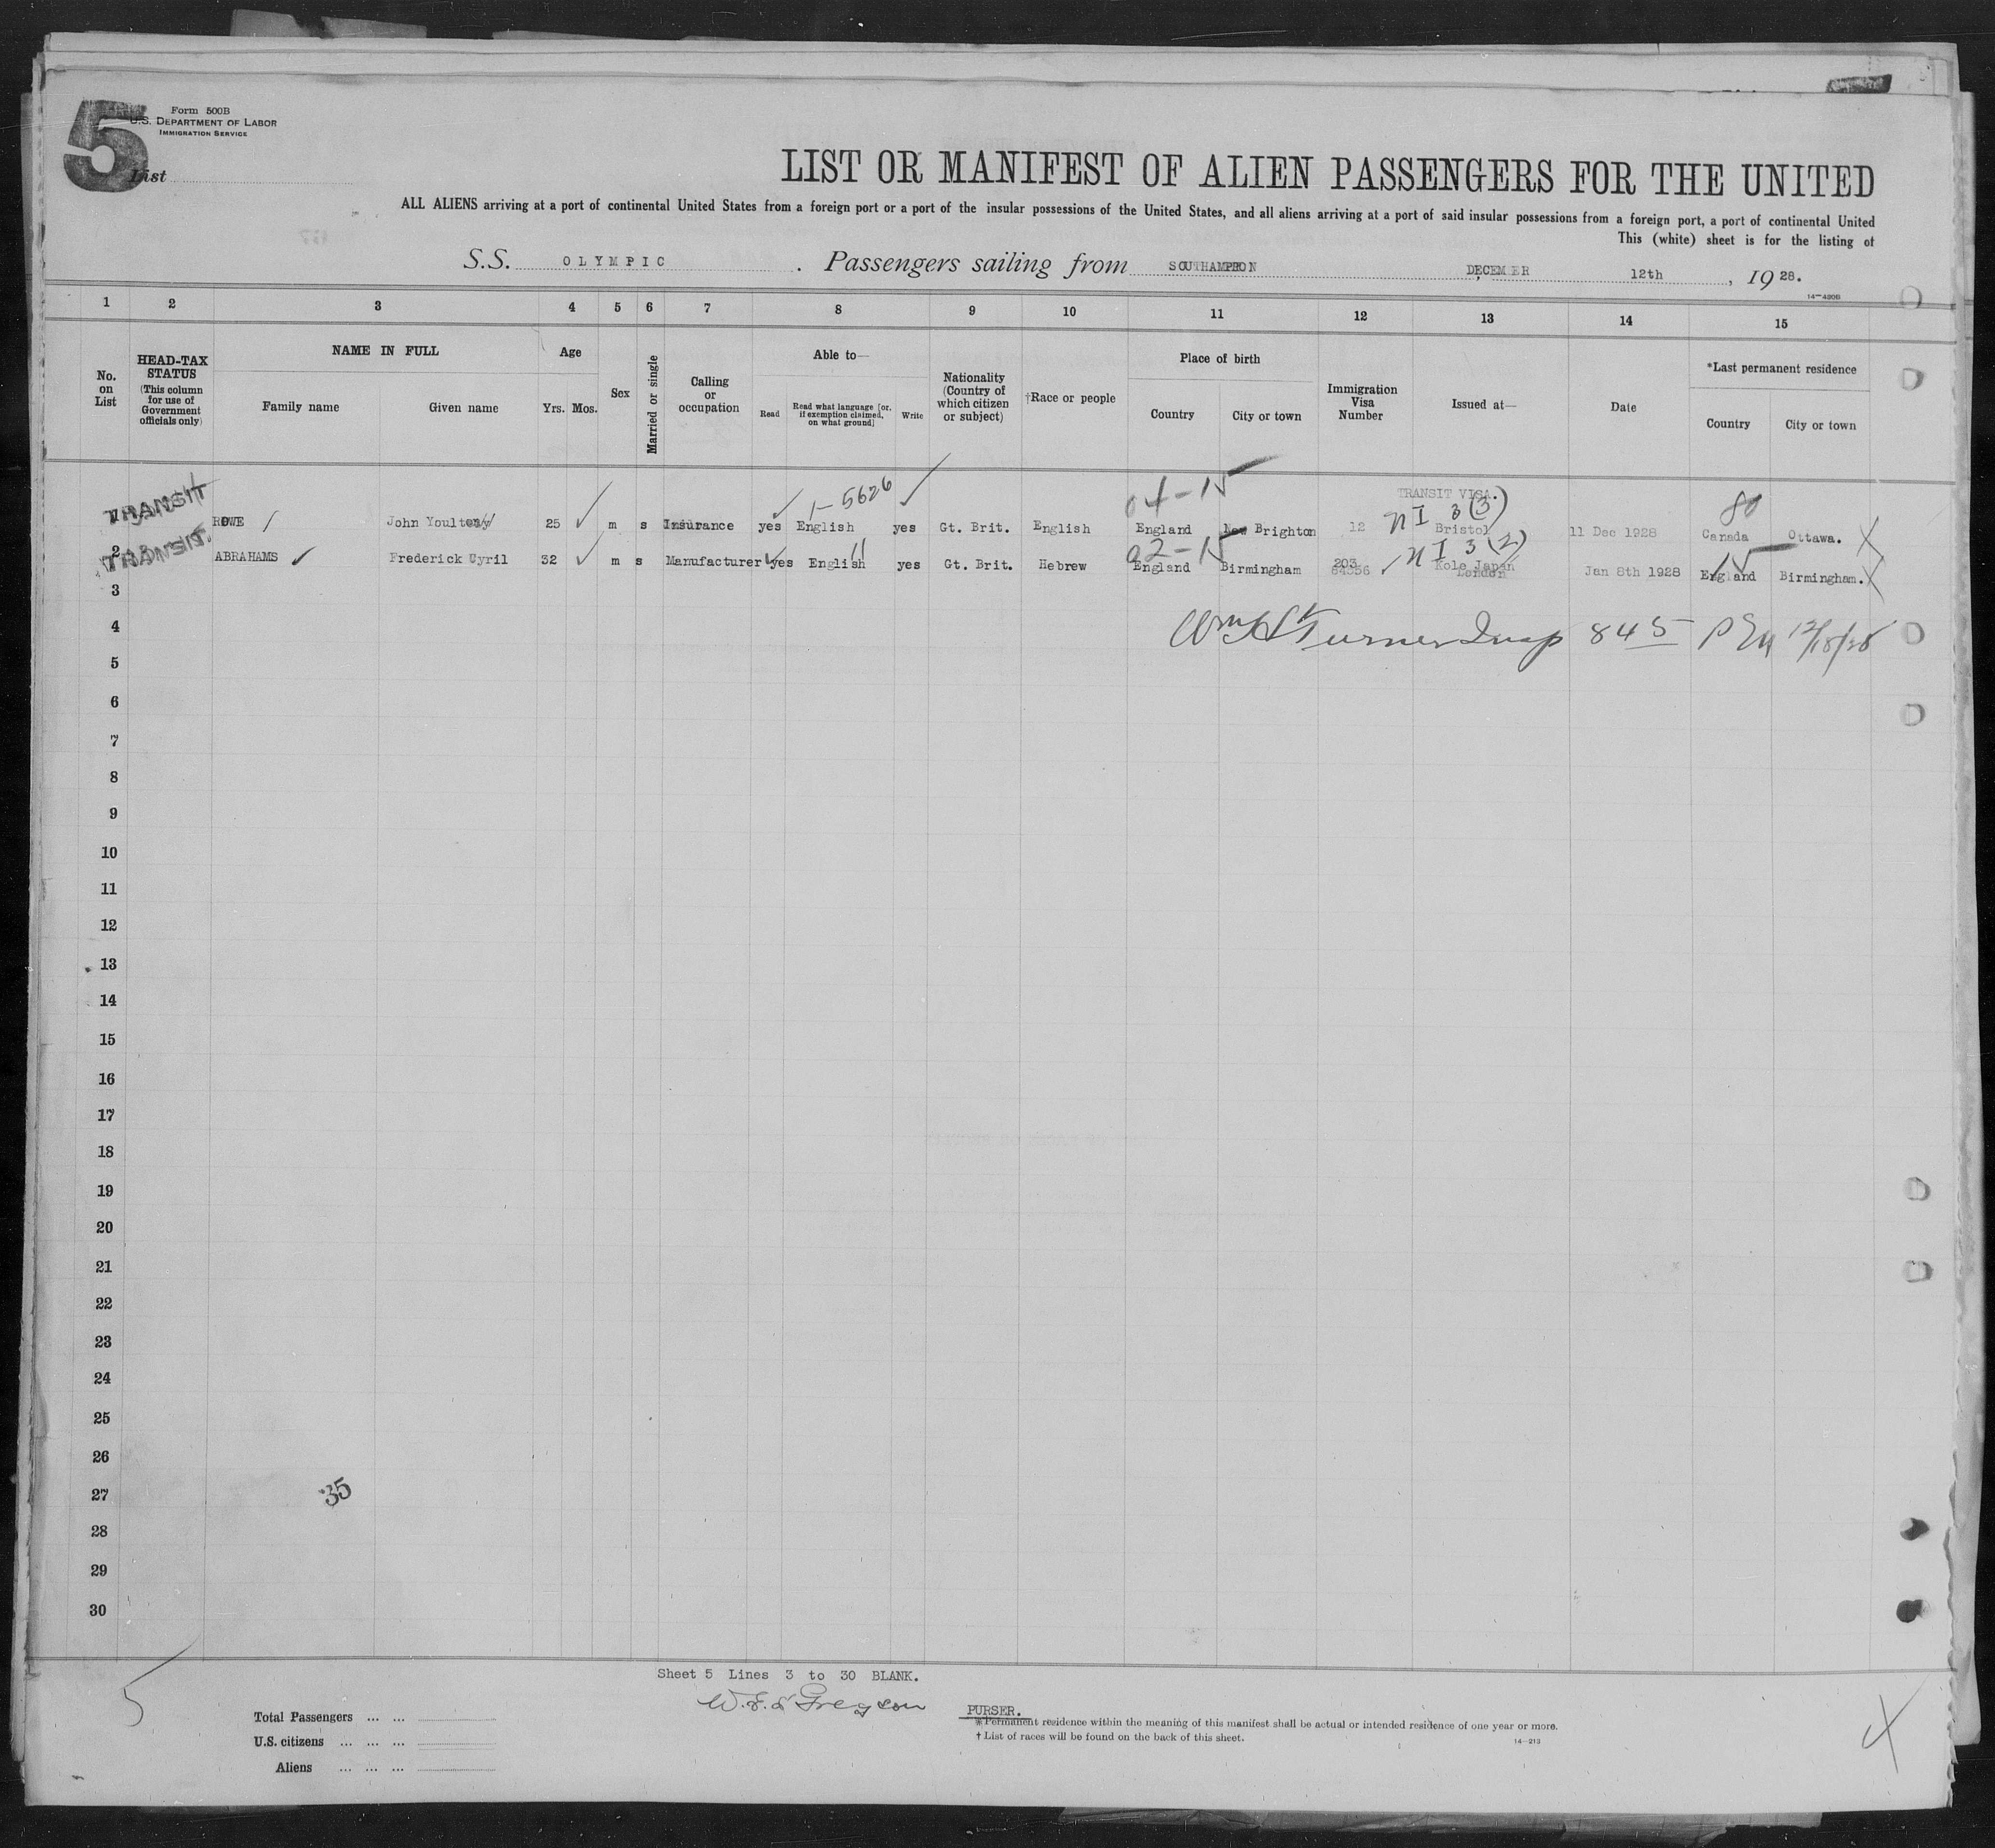 5
Form 500B
U.S. DEPARTMENT OF LABOR
IMMIGRATION SERVICE
List
LIST OR MANIFEST OF ALIEN PASSENGERS FOR THE UNITED
ALL ALIENS arriving at a port of continental United States from a foreign port or a port of the insular possessions of the United States, and all aliens arriving at a port of said insular possessions from a foreign port, a port of continental United
This (white) sheet is for the listing of
S.S. OLYMPIC. Passengers sailing from SOUTHAMPTON DECEMBER 12th, 1928.
14-420B
1 2 3 4 5 6 7 8 9 10 11 12 13 14 15
No. on List
HEAD-TAX STATUS (This column for use of Government officials only)
NAME IN FULL
Family name Given name
Age
Yrs. Mos.
Sex
Married or single
Calling or occupation
Able to—
Read
Read what language [or, if exemption claimed, on what ground]
Write
Nationality (Country of which citizen or subject)
†Race or people
Place of birth
Country City or town
Immigration Visa Number
Issued at—
Date
*Last permanent residence
Country City or town
1-5626 04-15 TRANSIT VISA. NI 3(3) 80
TRANSIT ROWE John 25 m s Insurance yes English yes Gt. Brit. English England New Brighton 12 Bristol 11 Dec 1928 Canada Ottawa. X
11 02-15 NI 3(2) 15
TRANSIT. 2 ABRAHAMS Frederick Cyril 32 m s Manufacturer yes English yes Gt. Brit. Hebrew England Birmingham 203 64356 London Jan 8th 1928 England Birmingham. X
3
4 Turner Insp 845 12/18/28
5
6
7
8
9
10
11
12
13
14
15
16
17
18
19
20
21
22
23
24
25
26
27 35
28
29
30
Sheet 5 Lines 3 to 30 BLANK.
5
Gregson PURSER.
Total Passengers ... ...
U.S. citizens ... ... ...
Aliens ... ... ...
* Permanent residence within the meaning of this manifest shall be actual or intended residence of one year or more.
† List of races will be found on the back of this sheet.
14-213
X